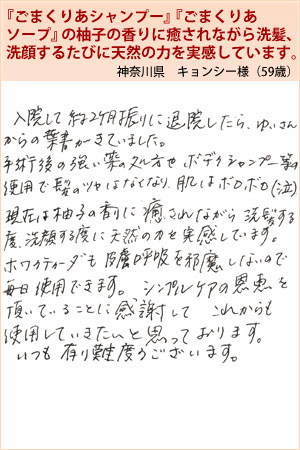 『ごまくりあシャンプー』『ごまくりあ
ソープ』の柚子の香りに癒されながら洗髪、
洗顔するたびに天然の力を実感しています。
神奈川県　キョンシー様（59歳）
入院して約2ケ月振りに退院したら、ゆいさん
からの葉書がきていました。
手術後の強い薬の処方せ ボディシャンプー等の
使用で髪のツヤはなくなり、肌はボロボロ(泣)
現在は柚子の香りに癒されながら洗髪する
度、洗顔する度に天然の力を実感しています。
ホワイティーダも皮膚呼吸を邪魔しないので
毎日使用できます。シンプルケアの恩恵を
頂いていることに感謝して これからも
使用していきたいと思っております。
いつも有り難度うございます。